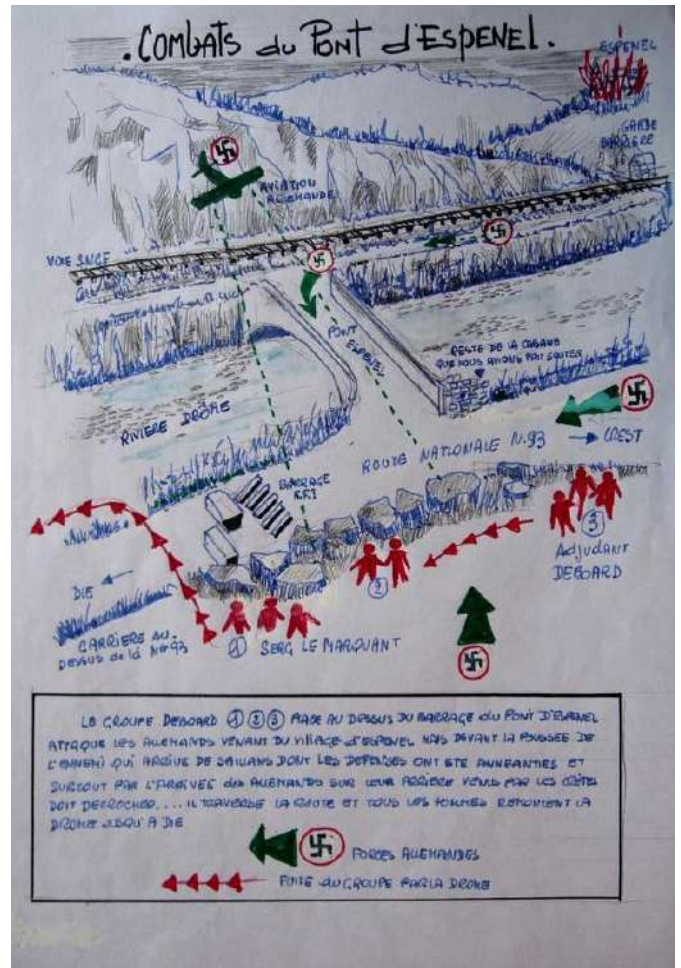 . COMBATS du PONT d'ESPENEL .
ESPENEL
GARDE
BARRIÈRE
AVIATION
ALLEMANDE
VOIE SNCF
PONT
ESPENEL
RESTE DE LA CABANE
QUE NOUS AVONS FAIT SAUTER
RIVIERE DRÔME
ROUTE NATIONALE N.93 → CREST
BARRAGE
F.F.I
DIE
CARRIERE AU-
DESSUS de la N 93
① SERG LE MARQUANT
②
③
Adjudant
DEBOARD
LE GROUPE DEBOARD ① ② ③ PLACE AU DESSUS DU BARRAGE du PONT D'ESPENEL
ATTAQUE LES ALLEMANDS VENANT DU VILLAGE d'ESPENEL MAIS DEVANT LA POUSSEE DE
L'ENNEMI QUI ARRIVE DE SAILLANS DONT LES DEFENSES ONT ETE ANNEANTIES ET
SURTOUT PAR L'ARRIVEE des ALLEMANDS SUR LEUR ARRIERE VENUS PAR LES CRÊTES
DOIT DECROCHER.... IL TRAVERSE LA ROUTE ET TOUS LES HOMMES REMONTENT LA
DROME JUSQU'A DIE
FORCES ALLEMANDES
FUITE du GROUPE PAR LA DROME